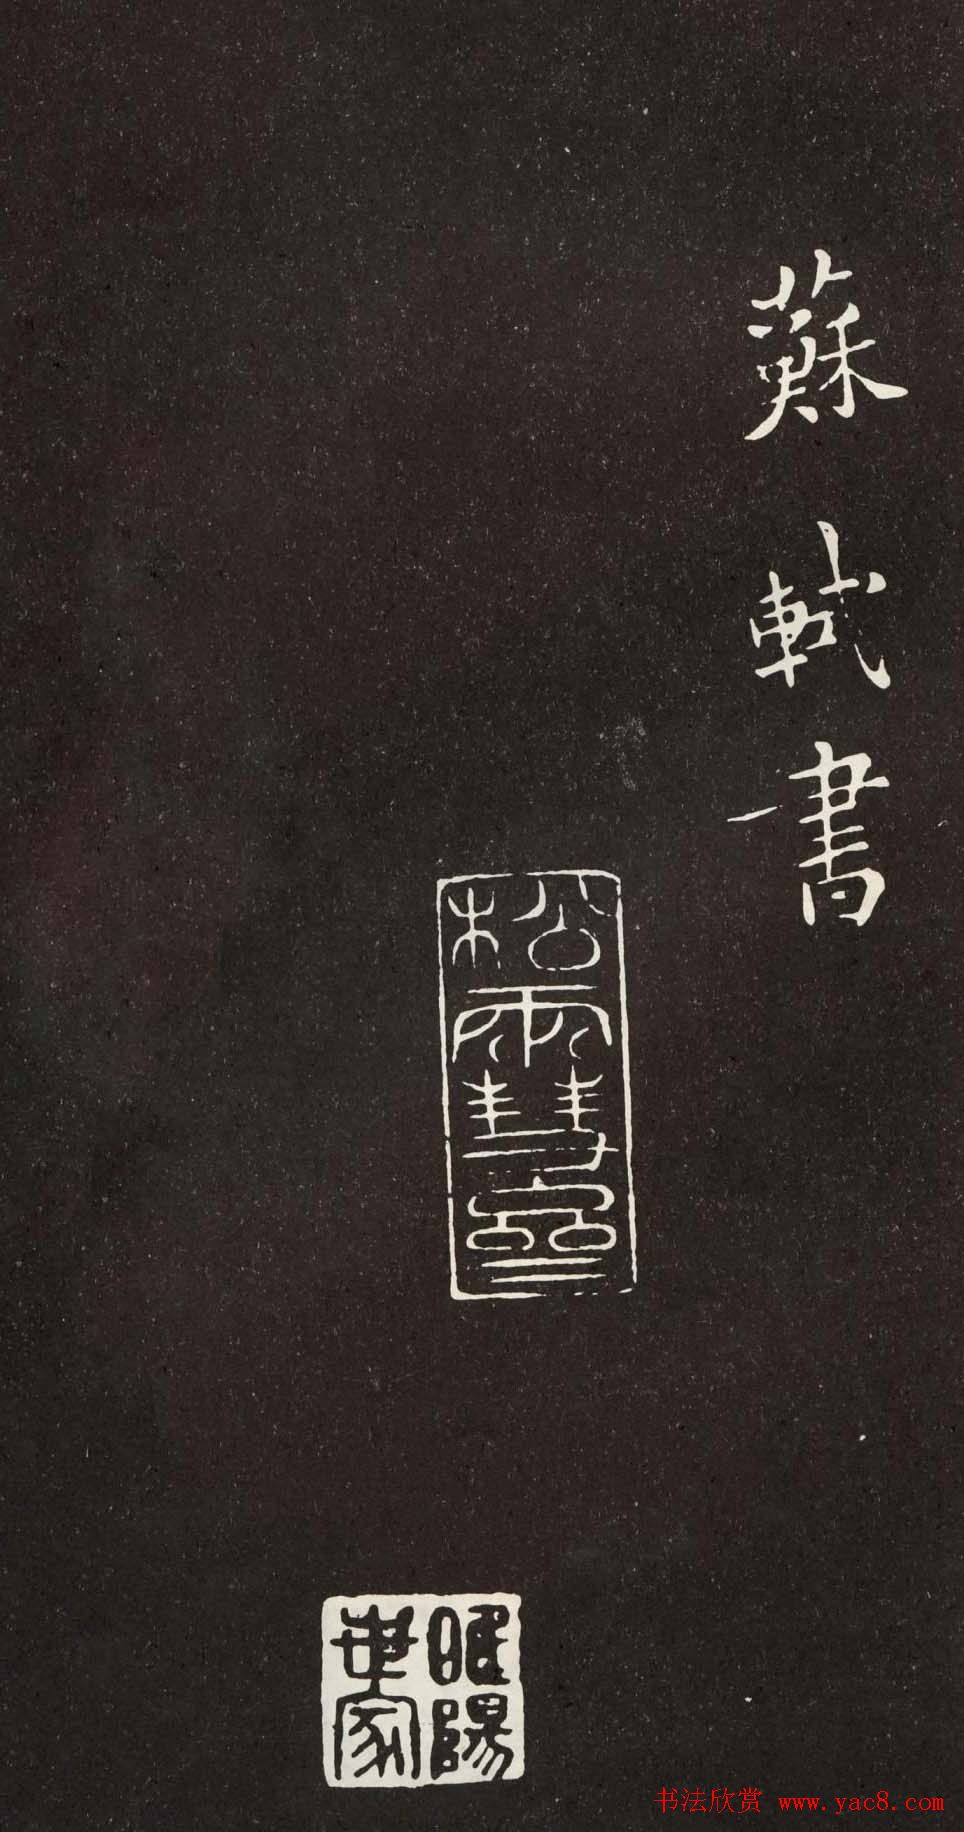 蘇軾書
松雪齋
睢陽世家
书法欣赏 www.yac8.com